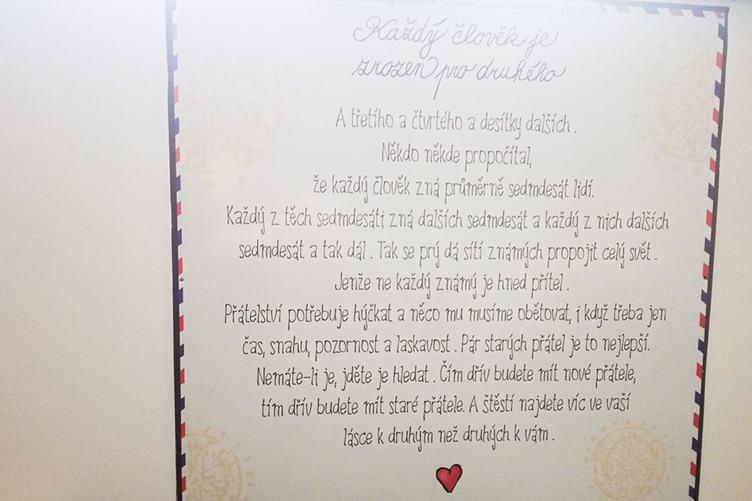 Každý člověk je
zrozen pro druhého
A třetího a čtvrtého a desítky dalších.
Někdo někde propočítal,
že každý člověk zná průměrně sedmdesát lidí.
Každý z těch sedmdesáti zná dalších sedmdesát a každý z nich dalších
sedmdesát a tak dál. Tak se prý dá sítí známých propojit celý svět.
Jenže ne každý známý je hned přítel.
Přátelství potřebuje hýčkat a něco mu musíme obětovat, i když třeba jen
čas, snahu, pozornost a laskavost. Pár starých přátel je to nejlepší.
Nemáte-li je, jděte je hledat. Čím dřív budete mít nové přátele,
tím dřív budete mít staré přátele. A štěstí najdete víc ve vaší
lásce k druhým než druhých k vám.